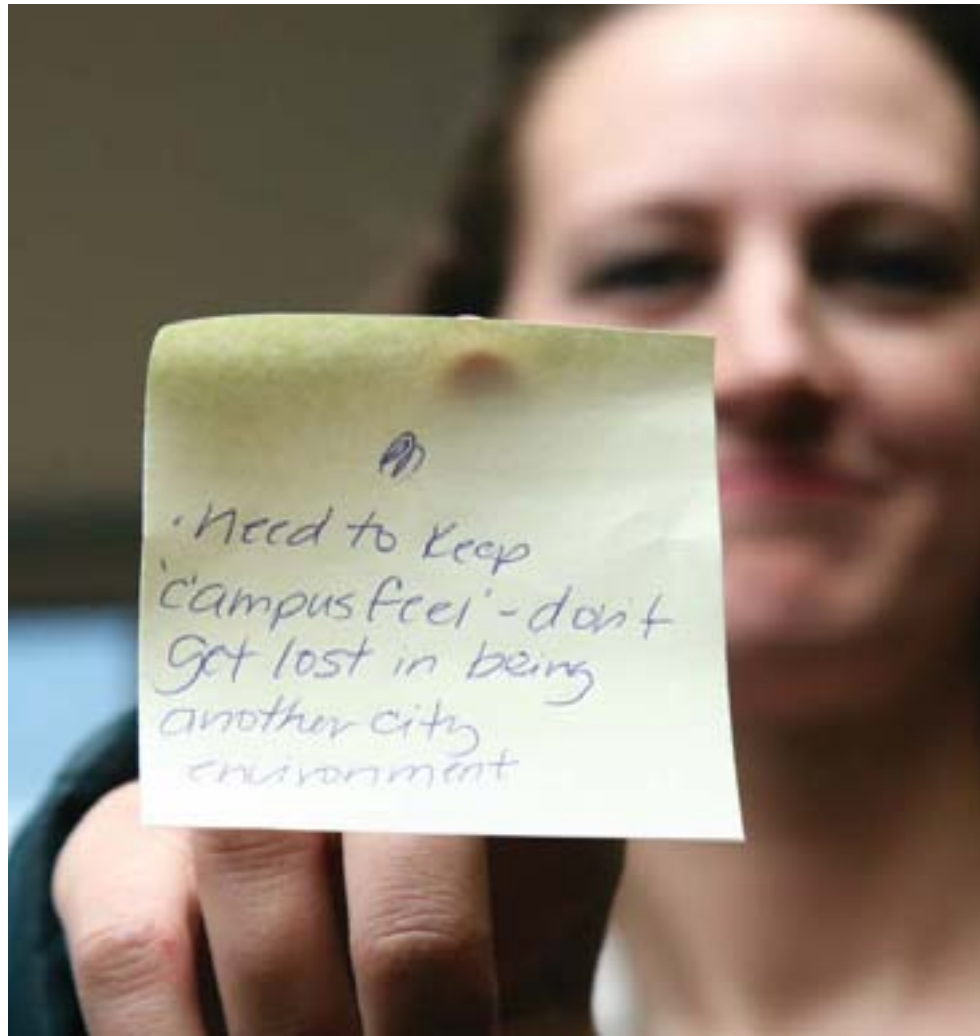 · Need to keep
'campus feel' - don't
get lost in being
another city
environment